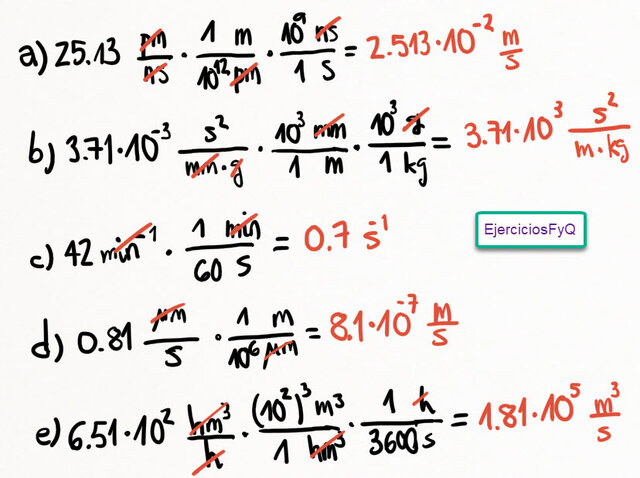 a) 25.13 pm/ns · 1 m/10¹² pm · 10⁹ ns/1 s = 2.513·10⁻² m/s
b) 3.71·10⁻³ s²/mm·g · 10³ mm/1 m · 10³ g/1 kg = 3.71·10³ s²/m·kg
c) 42 min⁻¹ · 1 min/60 s = 0.7 s⁻¹
EjerciciosFyQ
d) 0.81 μm/s · 1 m/10⁶ μm = 8.1·10⁻⁷ m/s
e) 6.51·10² hm³/h · (10²)³ m³/1 hm³ · 1 h/3600 s = 1.81·10⁵ m³/s